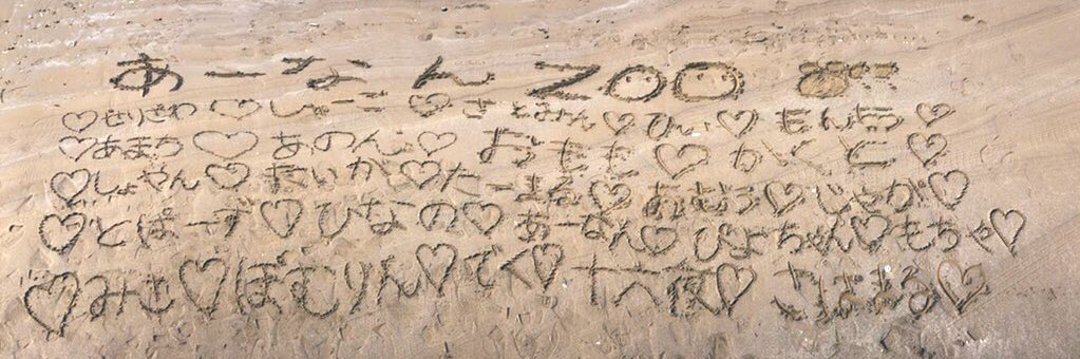 あーなん ZOO
♡せりざわ♡しょーご♡さ とみん♡ひぃ♡もんち♡
♡あまち♡あのん♡おもち♡かくと♡
♡しょやん♡たいが♡たーまる♡おもう♡じゃが♡
♡とぱーず♡ひなの♡あーなん♡ぴよちゃん♡もちゃ♡
♡みさ♡ぽむりん♡てく♡十六夜♡こはまる♡